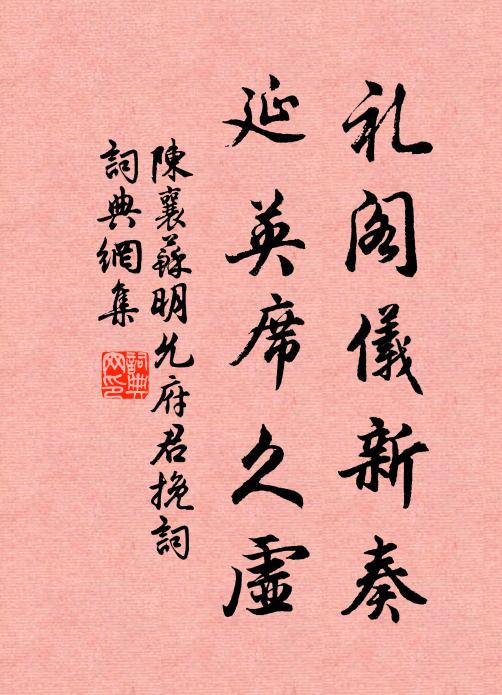 礼阁儀新奏
延英席久虛
陳襄蘇明允府君挽詞
詞典網集
詞典網印